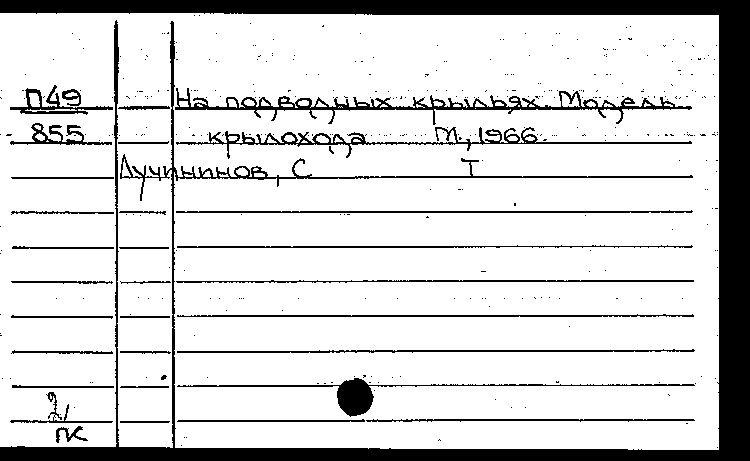 П49 На подводных крыльях. Модель
855 крылохода М., 1966.
Лучининов, С Т
2/
ПК